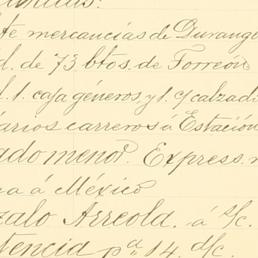 te mercancías de Durango
d. de 73 btos. de Torreón
d. 1. caja géneros y 1. c/ calzad
arios carreros á Estación
ado menor. Express.
a á México
zalo Arreola. á s/c.
tencia pa. 14. d/c.